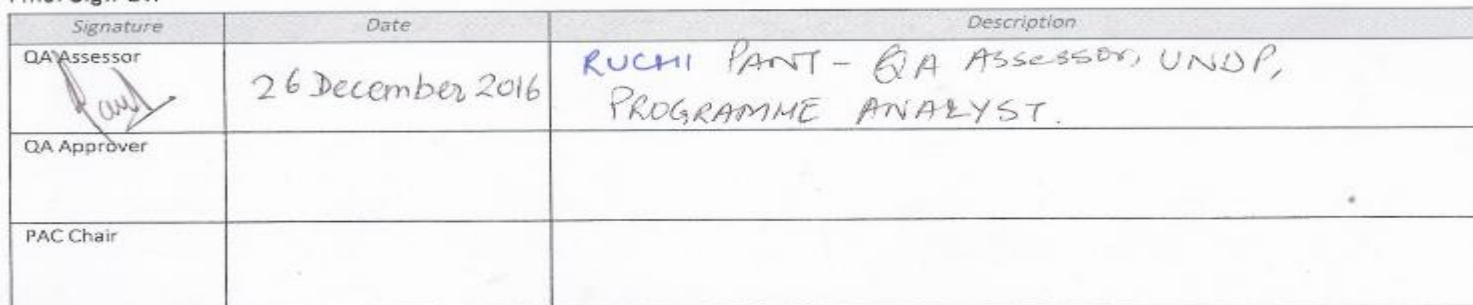 Signature Date Description
QA Assessor
Pant
26 December 2016
RUCHI PANT - QA Assessor, UNDP,
PROGRAMME ANALYST.
QA Approver
PAC Chair